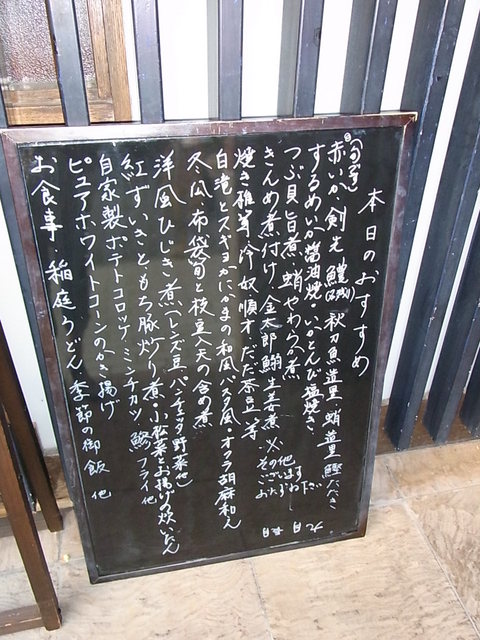 本日のおすすめ
赤いか、剣先、鱧 秋刀魚造里、蛸造里、鰹たたき
するめいか醤油焼・いかとんび塩焼き
つぶ貝旨煮、蛸やわらか煮
きんめ煮付け、金太郎鰯生姜煮
その他
ございます
おたずね下さい
焼き椎茸、冷奴、順才、だだ茶豆、等
白滝とズキョかにかまの和風パスタ風、オクラ胡麻和え
冬瓜、布袋筍と枝豆入天の含め煮
洋風ひじき煮(レンズ豆、パンチェッタ野菜他)
紅ずいきともち豚炒り煮、小松菜とお揚げの炊いたん
自家製ポテトコロッケ、ミンチカツ、鯵フライ他
ピュアホワイトコーンのかき揚げ
お食事 稲庭うどん、季節の御飯 他
九月